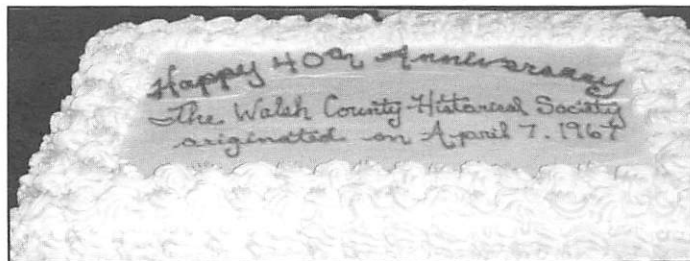 Happy 40th Anniversary
The Walsh County Historical Society
originated on April 7, 1967